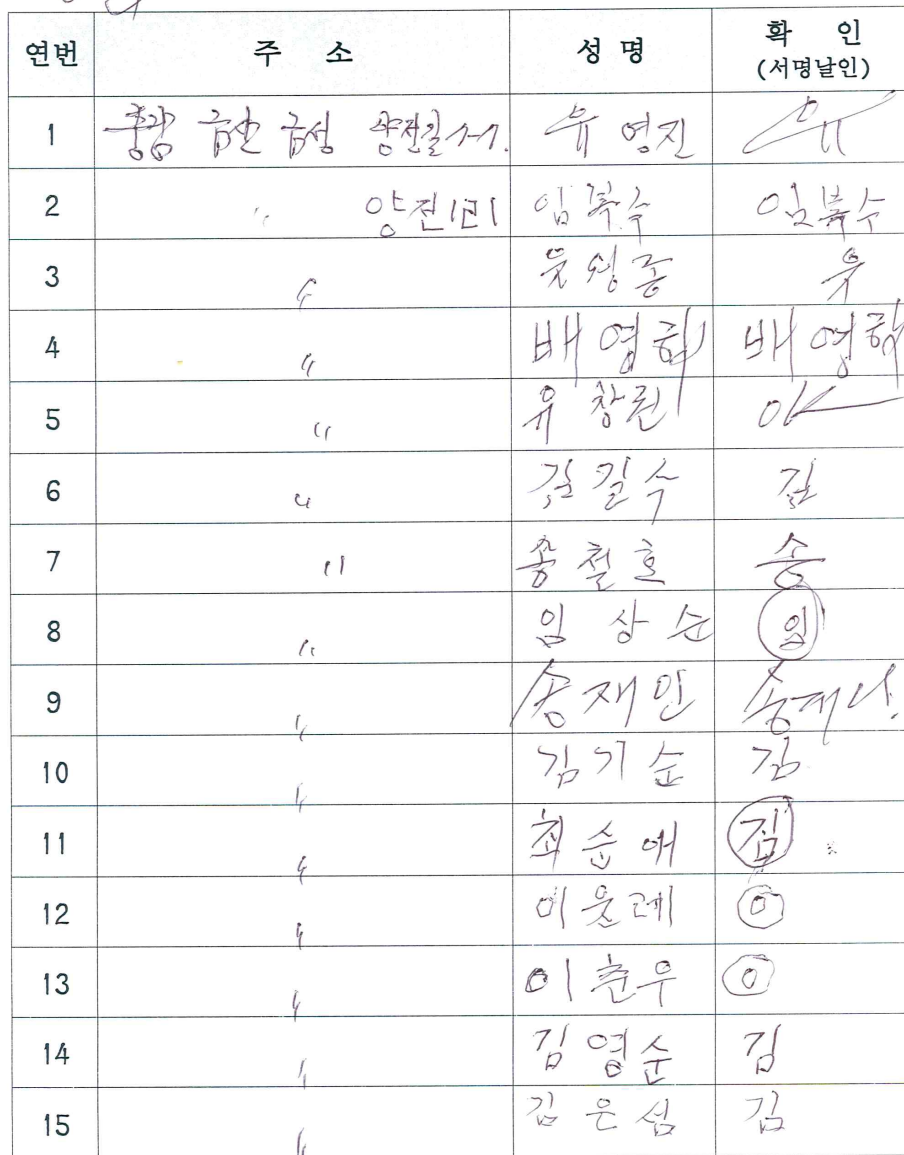 연번 주 소 성 명 확 인
(서명날인)
1 충남 금산 금성 양전길 유영진 유
2 〃 양전1리 임복수 임복수
3 〃 유영종 유
4 〃 배영희 배영희
5 〃 유창린
6 〃 김길수 김
7 〃 송철호 송
8 〃 임상순 임
9 〃 송재인 송재인
10 〃 김기순 김
11 〃 최순애
12 〃 이웃레 이
13 〃 이춘우 이
14 〃 김영순 김
15 〃 김은섬 김